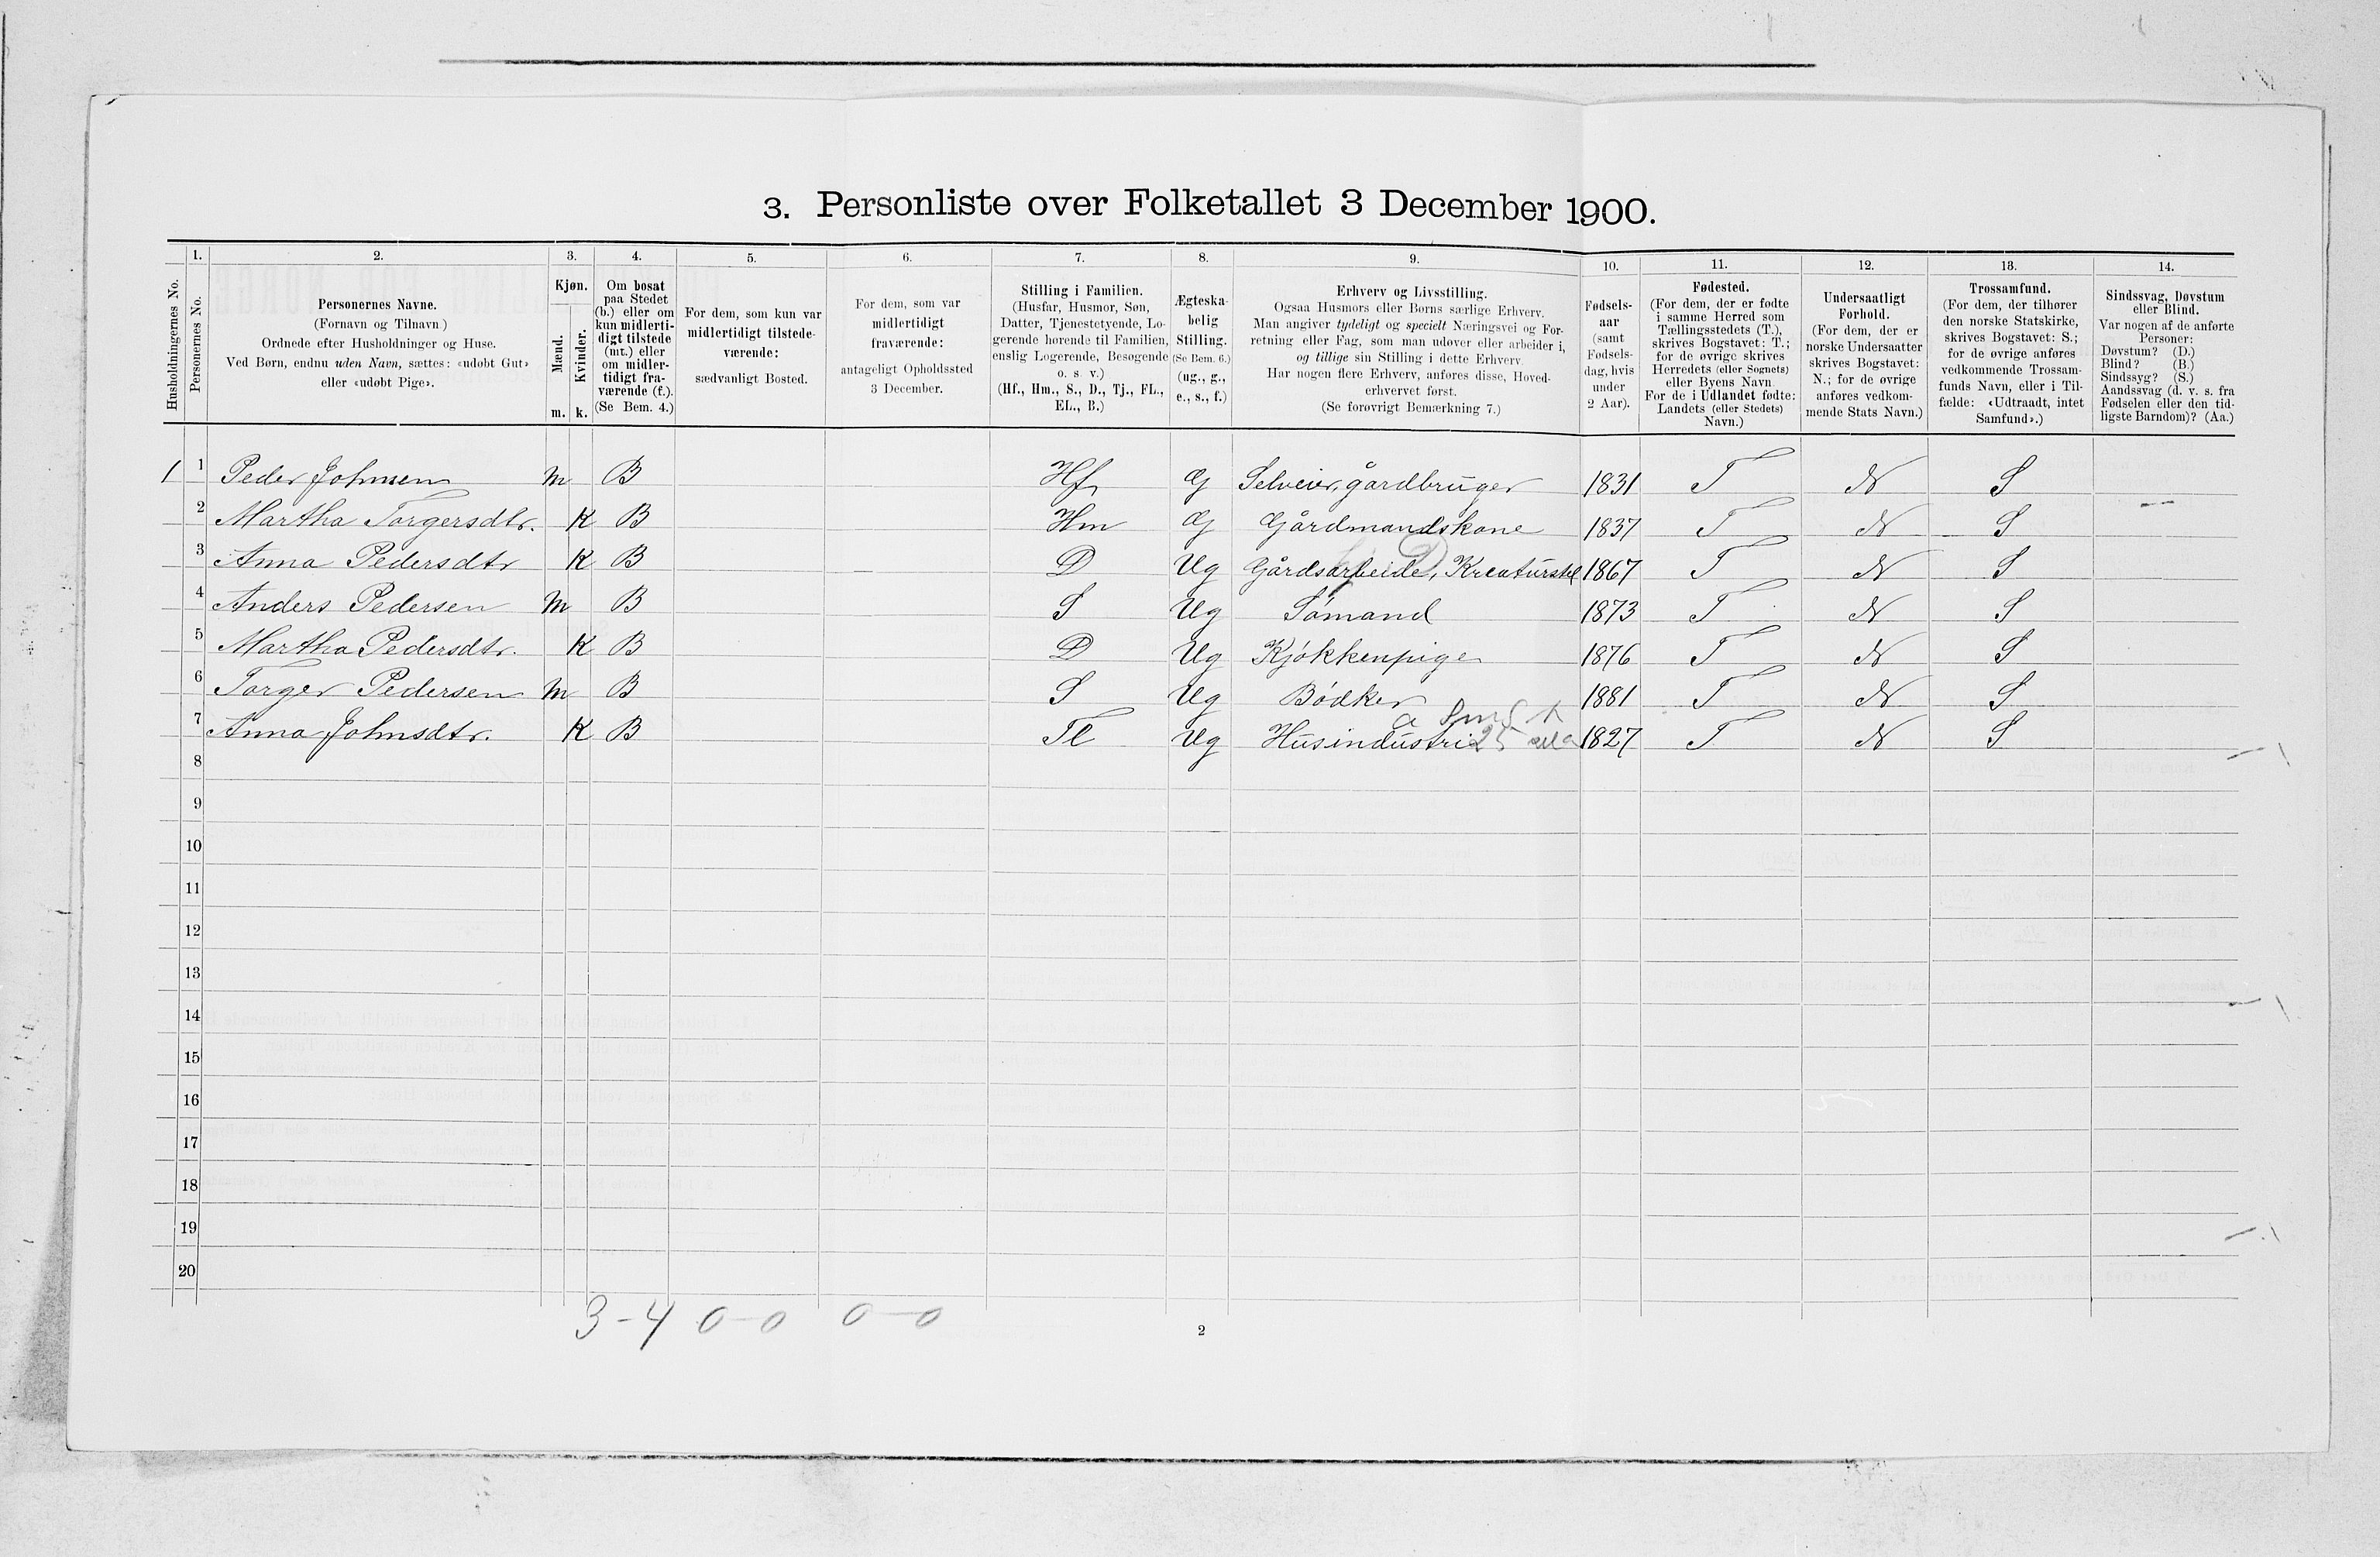 3. Personliste over Folketallet 3 December 1900.
Husholdningernes No.
1.
Personernes No.
2.
Personernes Navne.
(Fornavn og Tilnavn)
Ordnede efter Husholdninger og Huse.
Ved Børn, endnu uden Navn, sættes: «udøbt Gut»
eller «udøbt Pige».
3.
Kjøn.
Mænd.
Kvinder.
m. k.
4.
Om bosat
paa Stedet
(b.) eller om
kun midlerti-
digt tilstede
(mt.) eller
om midler-
tidigt fra-
værende (f.).
(Se Bem. 4.)
5.
For dem, som kun var
midlertidigt tilstede-
værende:
sædvanligt Bosted.
6.
For dem, som var
midlertidigt
fraværende:
antageligt Opholdssted
3 December.
7.
Stilling i Familien.
(Husfar, Husmor, Søn,
Datter, Tjenestetyende, Lo-
gerende hørende til Familien,
enslig Logerende, Besøgende
o. s. v.)
(Hf., Hm., S., D., Tj., FL.,
EL., B.)
8.
Ægteska-
belig
Stilling.
(Se Bem. 6.)
(ug., g.,
e., s., f.)
9.
Erhverv og Livsstilling.
Ogsaa Husmors eller Børns særlige Erhverv.
Man angiver tydeligt og specielt Næringsvei og For-
retning eller Fag, som man udøver eller arbeider i,
og tillige sin Stilling i dette Erhverv.
Har nogen flere Erhverv, anføres disse, Hoved-
erhvervet først.
(Se forøvrigt Bemærkning 7.)
10.
Fødsels-
aar
(samt
Fødsels-
dag, hvis
under
2 Aar).
11.
Fødested.
(For dem, der er fødte
i samme Herred som
Tællingsstedets (T.),
skrives Bogstavet: T.;
for de øvrige skrives
Herredets (eller Sognets)
eller Byens Navn.
For de i Udlandet fødte:
Landets (eller Stedets)
Navn.)
12.
Undersaatligt
Forhold.
(For dem, der er
norske Undersaatter
skrives Bogstavet:
N.; for de øvrige
anføres vedkom-
mende Stats Navn.)
13.
Trossamfund.
(For dem, der tilhører
den norske Statskirke,
skrives Bogstavet: S.;
for de øvrige anføres
vedkommende Trossam-
funds Navn, eller i Til-
fælde: «Udtraadt, intet
Samfund».)
14.
Sindssvag, Døvstum
eller Blind.
Var nogen af de anførte
Personer:
Døvstum? (D.)
Blind? (B.)
Sindssyg? (S.)
Aandssvag (d. v. s. fra
Fødselen eller den tid-
ligste Barndom)? (Aa.)
1 1 Peder Johnsen m B Hf G Selveier, gårdbruger 1831 T N S
2 Martha Torgersdtr. K B Hm G Gårdmandskone 1837 T N S
3 Anna Pedersdtr K B D Ug Gårdsarbeide, Kreaturstel 1867 T N S
4 Anders Pedersen m B S Ug Sømand 1873 T N S
5 Martha Pedersdtr. K B D Ug Kjøkkenpige 1876 T N S
6 Torger Pedersen m B S Ug Bødker 1881 T N S
7 Anna Johnsdtr. K B Fl Ug Husindustri 1827 T N S
8
9
10
11
12
13
14
15
16
17
18
19
20
3-4 0-0 0-0
2